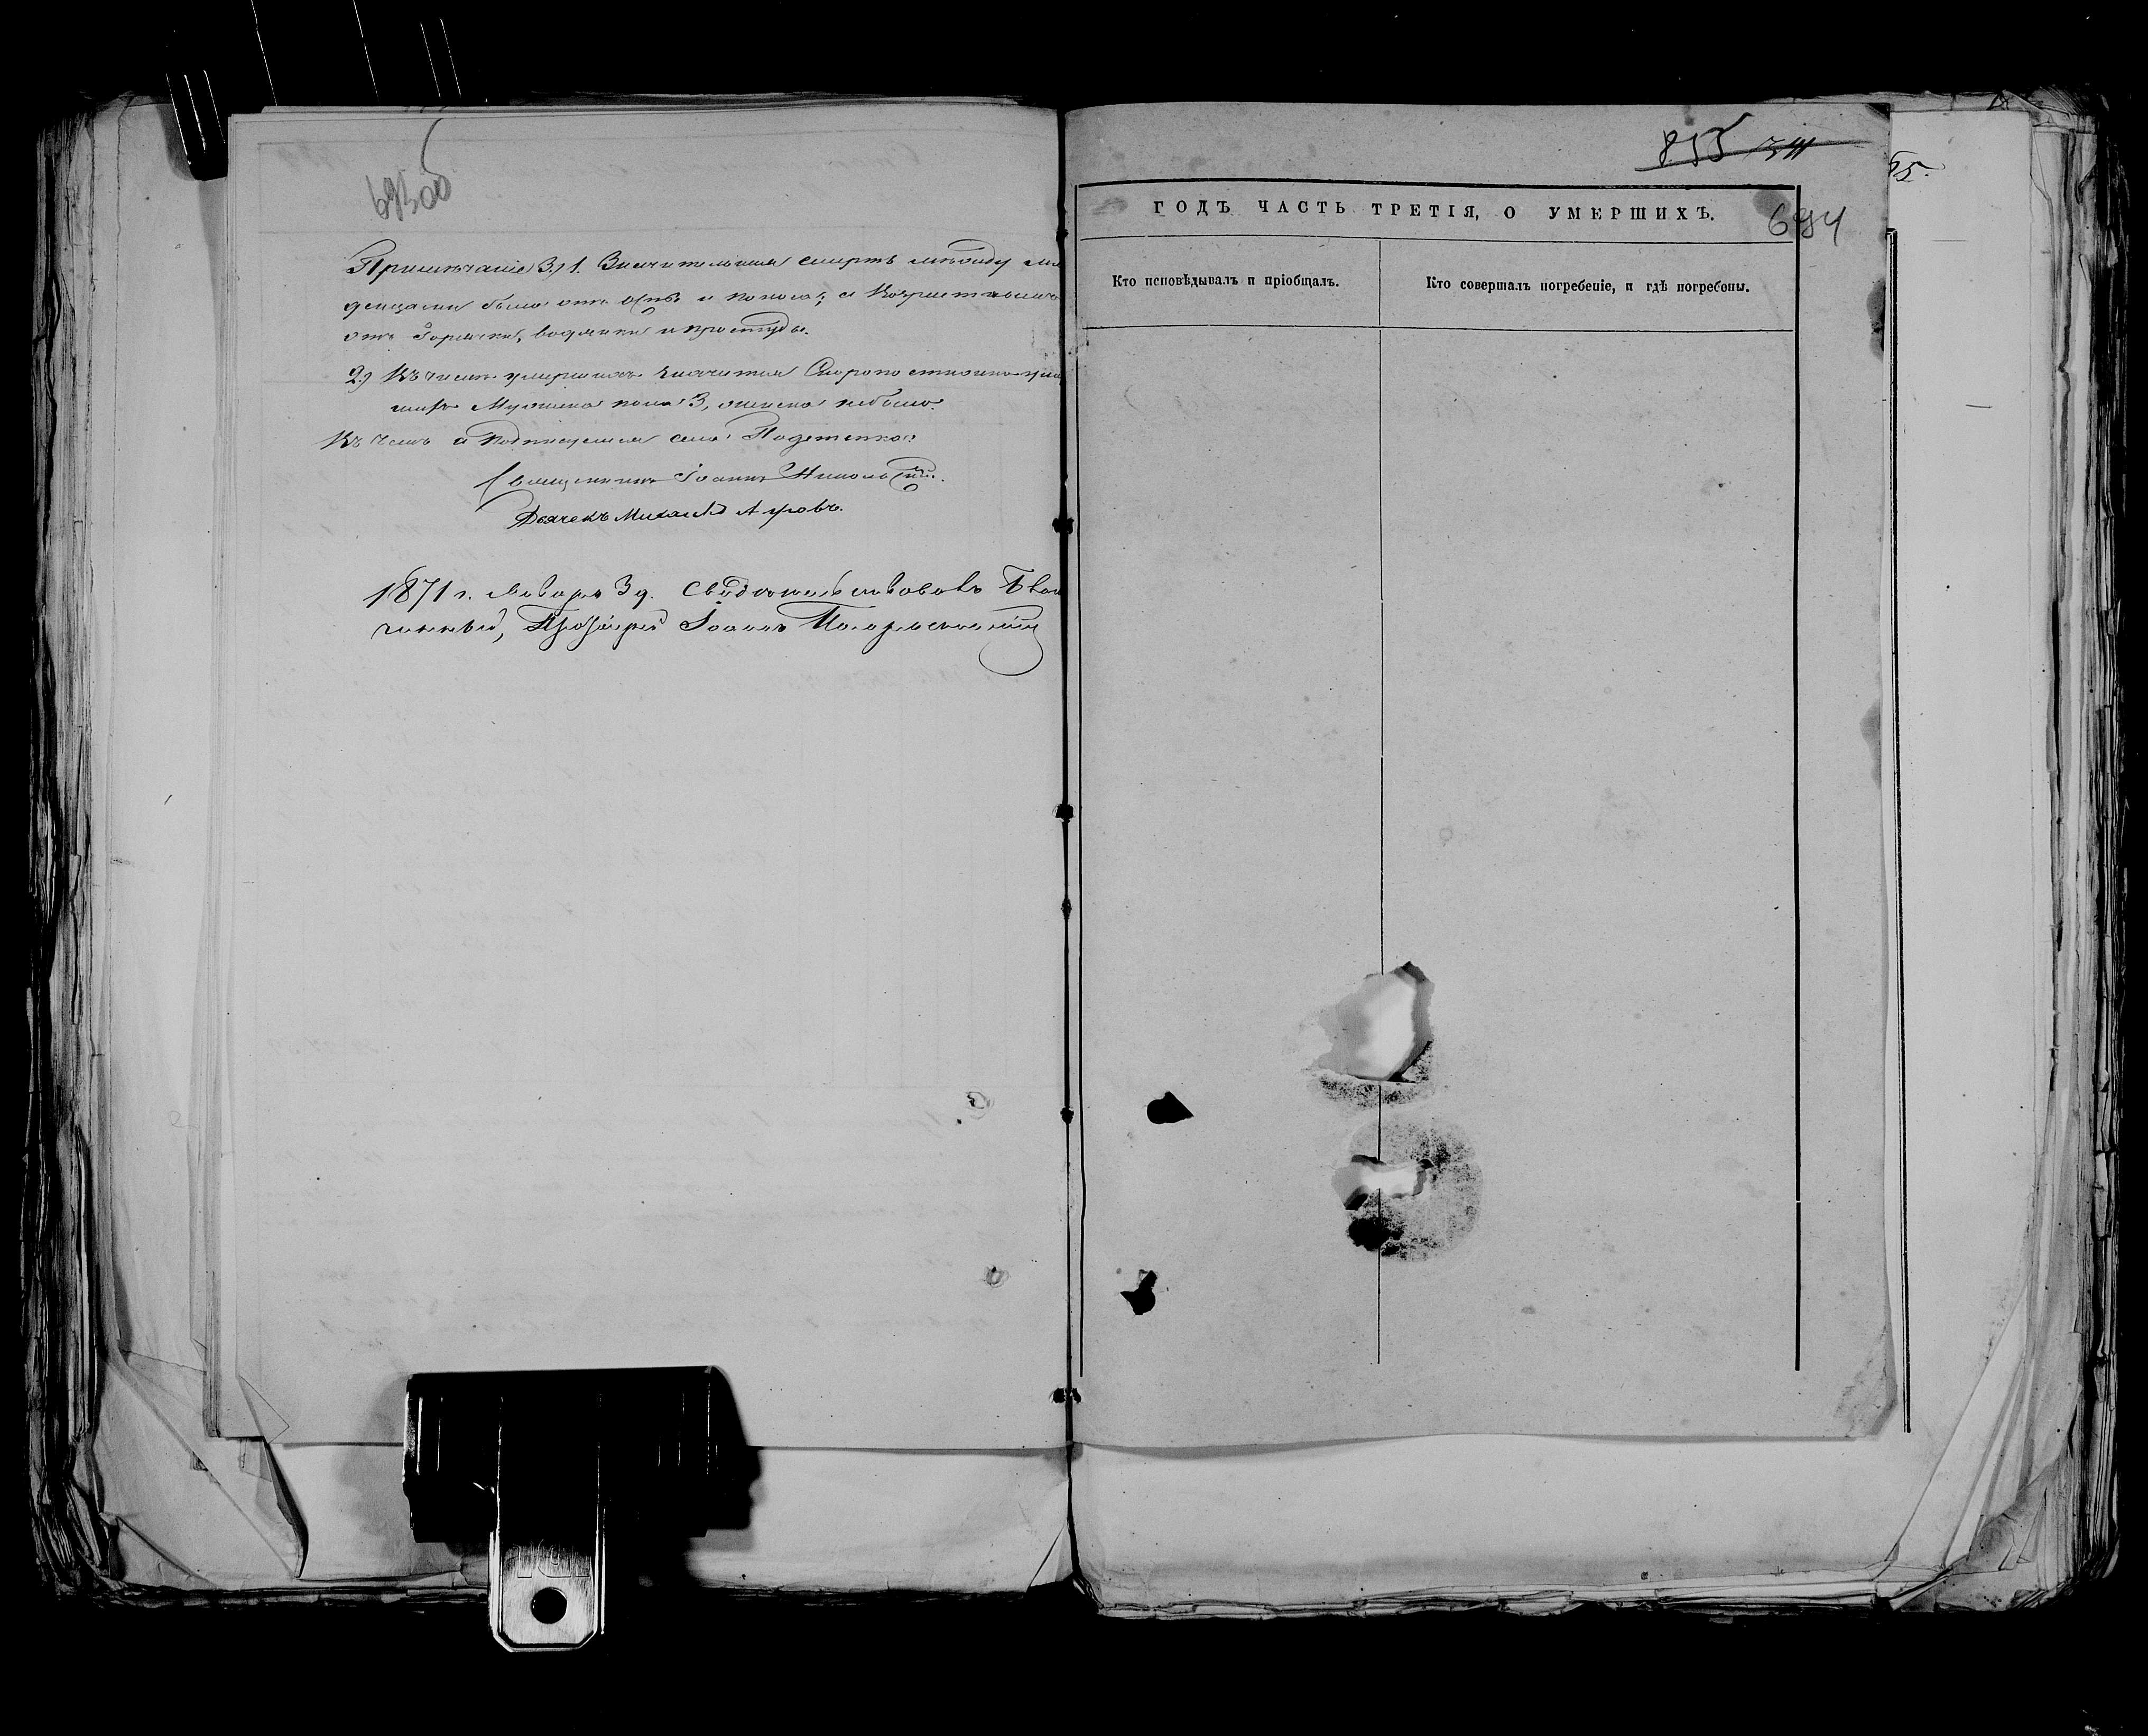 693об
Примѣчаніе 3.) 1. Значительная смерть между мла
денцами была отъ оспы и поноса; а возрастныхъ
отъ горячки, водянки и простуды.
2.) Въ числѣ умершихъ значится Скоропостижно уме
шихъ Мужеска пола 3, женска небыло.
Въ чемъ и подписуемся села
Священникъ Іоаннъ Никольскій.
Дьячекъ Михаилъ
1871 г. Января 3 д. Свидѣтельствовалъ Благо
чинный, Протоіерей Іоаннъ
855
694
ГОДЪ ЧАСТЬ ТРЕТІЯ, О УМЕРШИХЪ.
Кто исповѣдывалъ и пріобщалъ.
Кто совершалъ погребеніе, и гдѣ погребены.